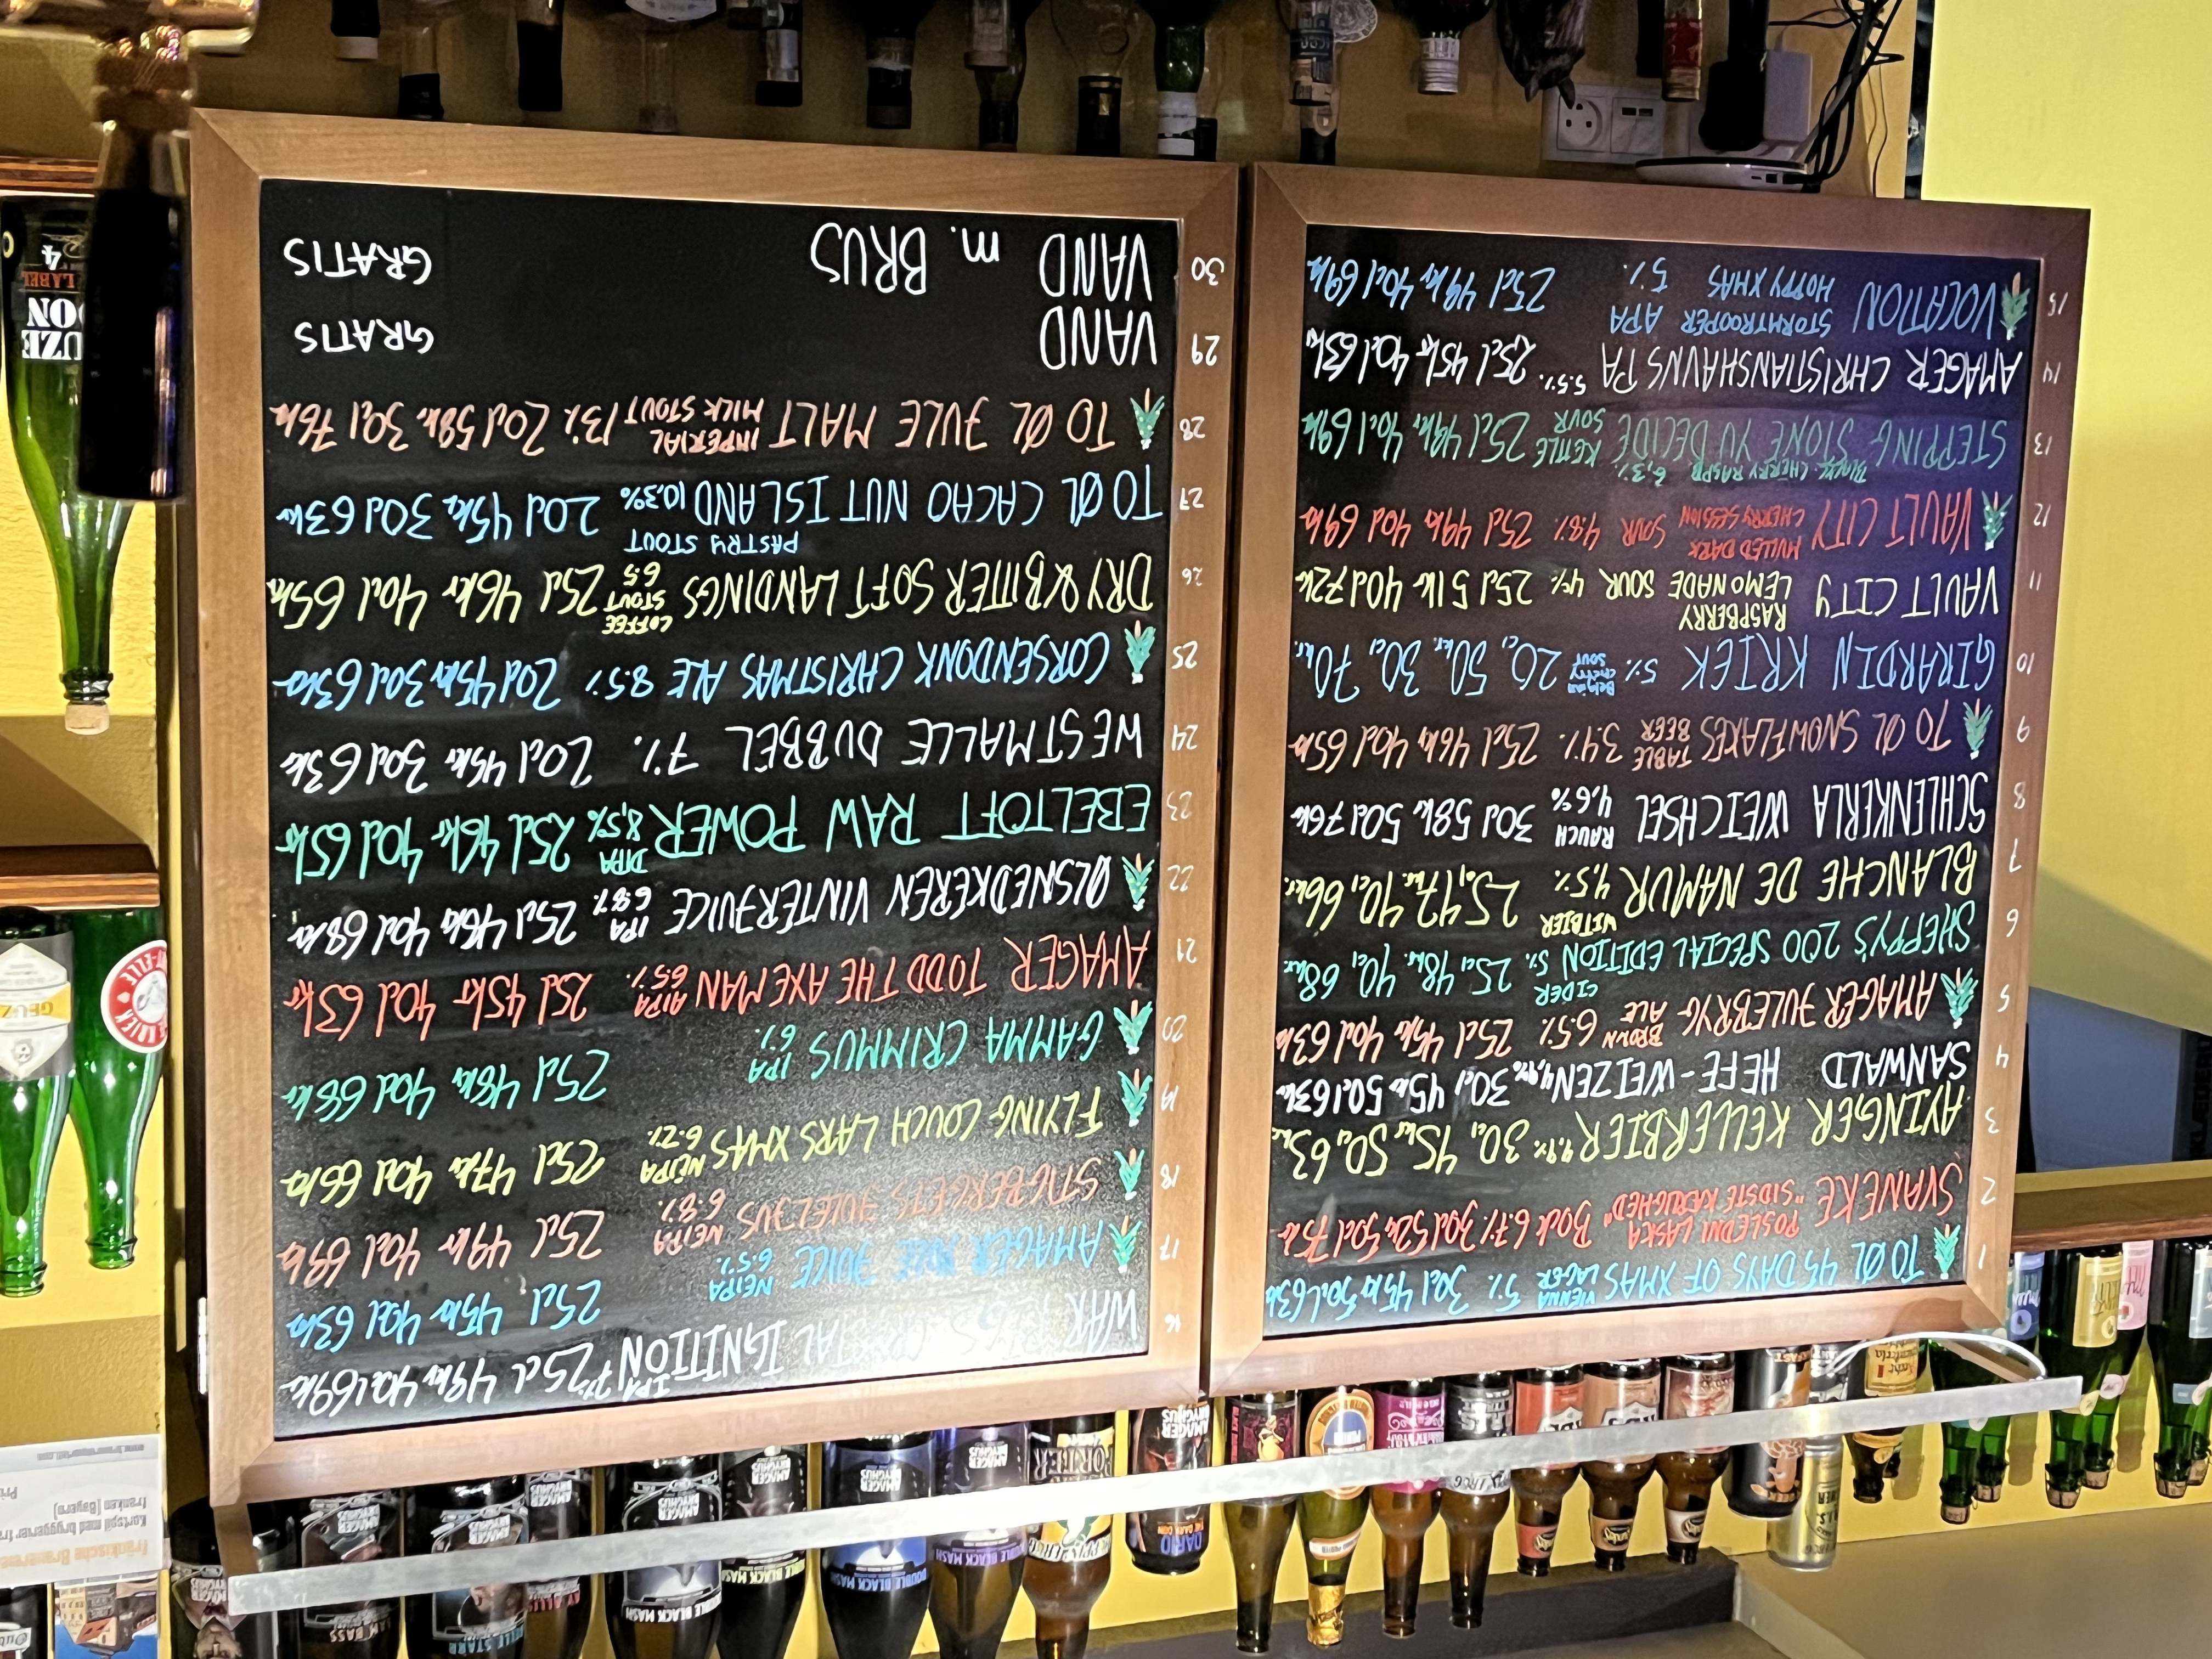 1 TO ØL 45 DAYS OF XMAS VIENNA LAGER 5% 30cl 45kr 50cl 63kr
2 SVANEKE POSLEDNI LASKA "SIDSTE KÆRLIGHED" Bock 6.7% 30cl 52kr 50cl 75kr
3 AYINGER KELLERBIER 4.9% 30cl 45kr 50cl 63kr
4 SANWALD HEFE-WEIZEN 4,9% 30cl 45kr 50cl 63kr
5 AMAGER JULEBRYG BROWN ALE 6.5% 25cl 45kr 40cl 63kr
6 SHEPPY'S 200 SPECIAL EDITION CIDER 5% 25cl 48kr. 40cl 68kr
7 BLANCHE DE NAMUR WITBIER 4,5% 25cl 47kr. 40cl 66kr.
8 SCHLENKERLA WEICHSEL RAUCH 4,6% 30cl 58kr 50cl 76kr
9 TO ØL SNOWFLAKES TABLE BEER 3.4% 25cl 46kr 40cl 65kr
10 GIRARDIN KRIEK 5% Belgian CHERRY SOUR 20cl 50kr. 30cl 70kr.
11 VAULT CITY RASPBERRY LEMONADE SOUR 4% 25cl 51kr 40cl 72kr
12 VAULT CITY MULLED DARK CHERRY SESSION SOUR 4.8% 25cl 49kr 40cl 69kr
13 STEPPING STONE YU DECIDE CHERRY RASPB. 6,3% KETTLE SOUR 25cl 49kr 40cl 69kr
14 AMAGER CHRISTIANSHAVNS PA 5.5% 25cl 45kr 40cl 63kr
15 VOCATION STORMTROOPER HOPPY XMAS APA 5% 25cl 49kr 40cl 69kr
16 CRYSTAL IGNITION IPA 7% 25cl 49kr 40cl 69kr
17 AMAGER JULE JUICE NEIPA 6.5% 25cl 45kr 40cl 63kr
18 STIGBERGETS JULELJUS NEIPA 6.8% 25cl 49kr 40cl 69kr
19 FLYING COUCH LARS XMAS NEIPA 6.2% 25cl 47kr 40cl 66kr
20 GAMMA CRIMMUS IPA 6% 25cl 48kr 40cl 68kr
21 AMAGER TODD THE AXE MAN AIPA 6.5% 25cl 45kr 40cl 63kr
22 ØLSNEDKEREN VINTERJUICE IPA 6.8% 25cl 48kr 40cl 68kr
23 EBELTOFT RAW POWER DIPA 8,5% 25cl 46kr 40cl 65kr
24 WESTMALLE DUBBEL 7% 20cl 45kr 30cl 63kr
25 CORSENDONK CHRISTMAS ALE 8.5% 20cl 45kr 30cl 63kr
26 DRY & BITTER SOFT LANDINGS COFFEE STOUT 6.5 25cl 46kr 40cl 65kr
27 TO ØL CACAO NUT ISLAND PASTRY STOUT 10,3% 20cl 45kr 30cl 63kr
28 TO ØL JULE MALT IMPERIAL MILK STOUT 13% 20cl 58kr 30cl 76kr
29 VAND GRATIS
30 VAND m. BRUS GRATIS
AMAGER BRYGHUS
DOUBLE BLACK MASH
PORTER